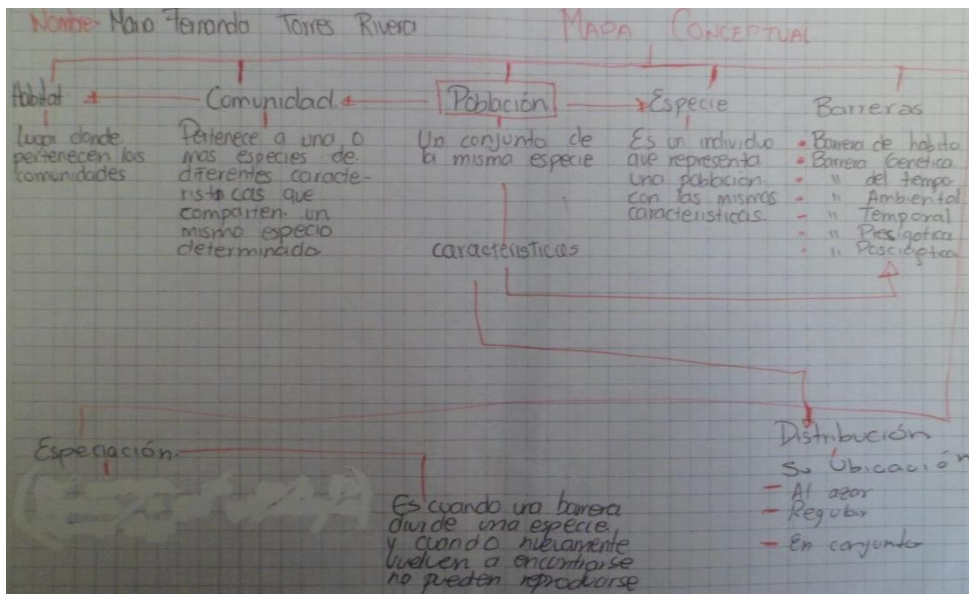 Nombre Mario Fernando Torres Rivera
MAPA CONCEPTUAL
Habitat
lugar donde
pertenecen las
comunidades
Comunidad
Pertenece a una o
mas especies de
diferentes caracte-
risticas que
comparten un
mismo espacio
determinado
Población
Un conjunto de
la misma especie
caracteristicas
Especie
Es un individuo
que representa
una población
con las mismas
caracteristicas
Barreras
Barrera de habito
Barrera Genética
" del tempo
" Ambiental
" Temporal
" Presigotica
" Poscigotica
Especiación
Es cuando una barrera
divide una especie,
y cuando nuevamente
vuelven a encontrarse
no pueden reproducirse
Distribución
Su Ubicación
- Al azar
- Regular
- En conjunto